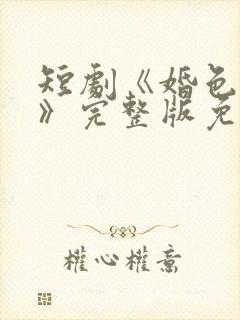 短劇《婚色
》完整版免
權心權意